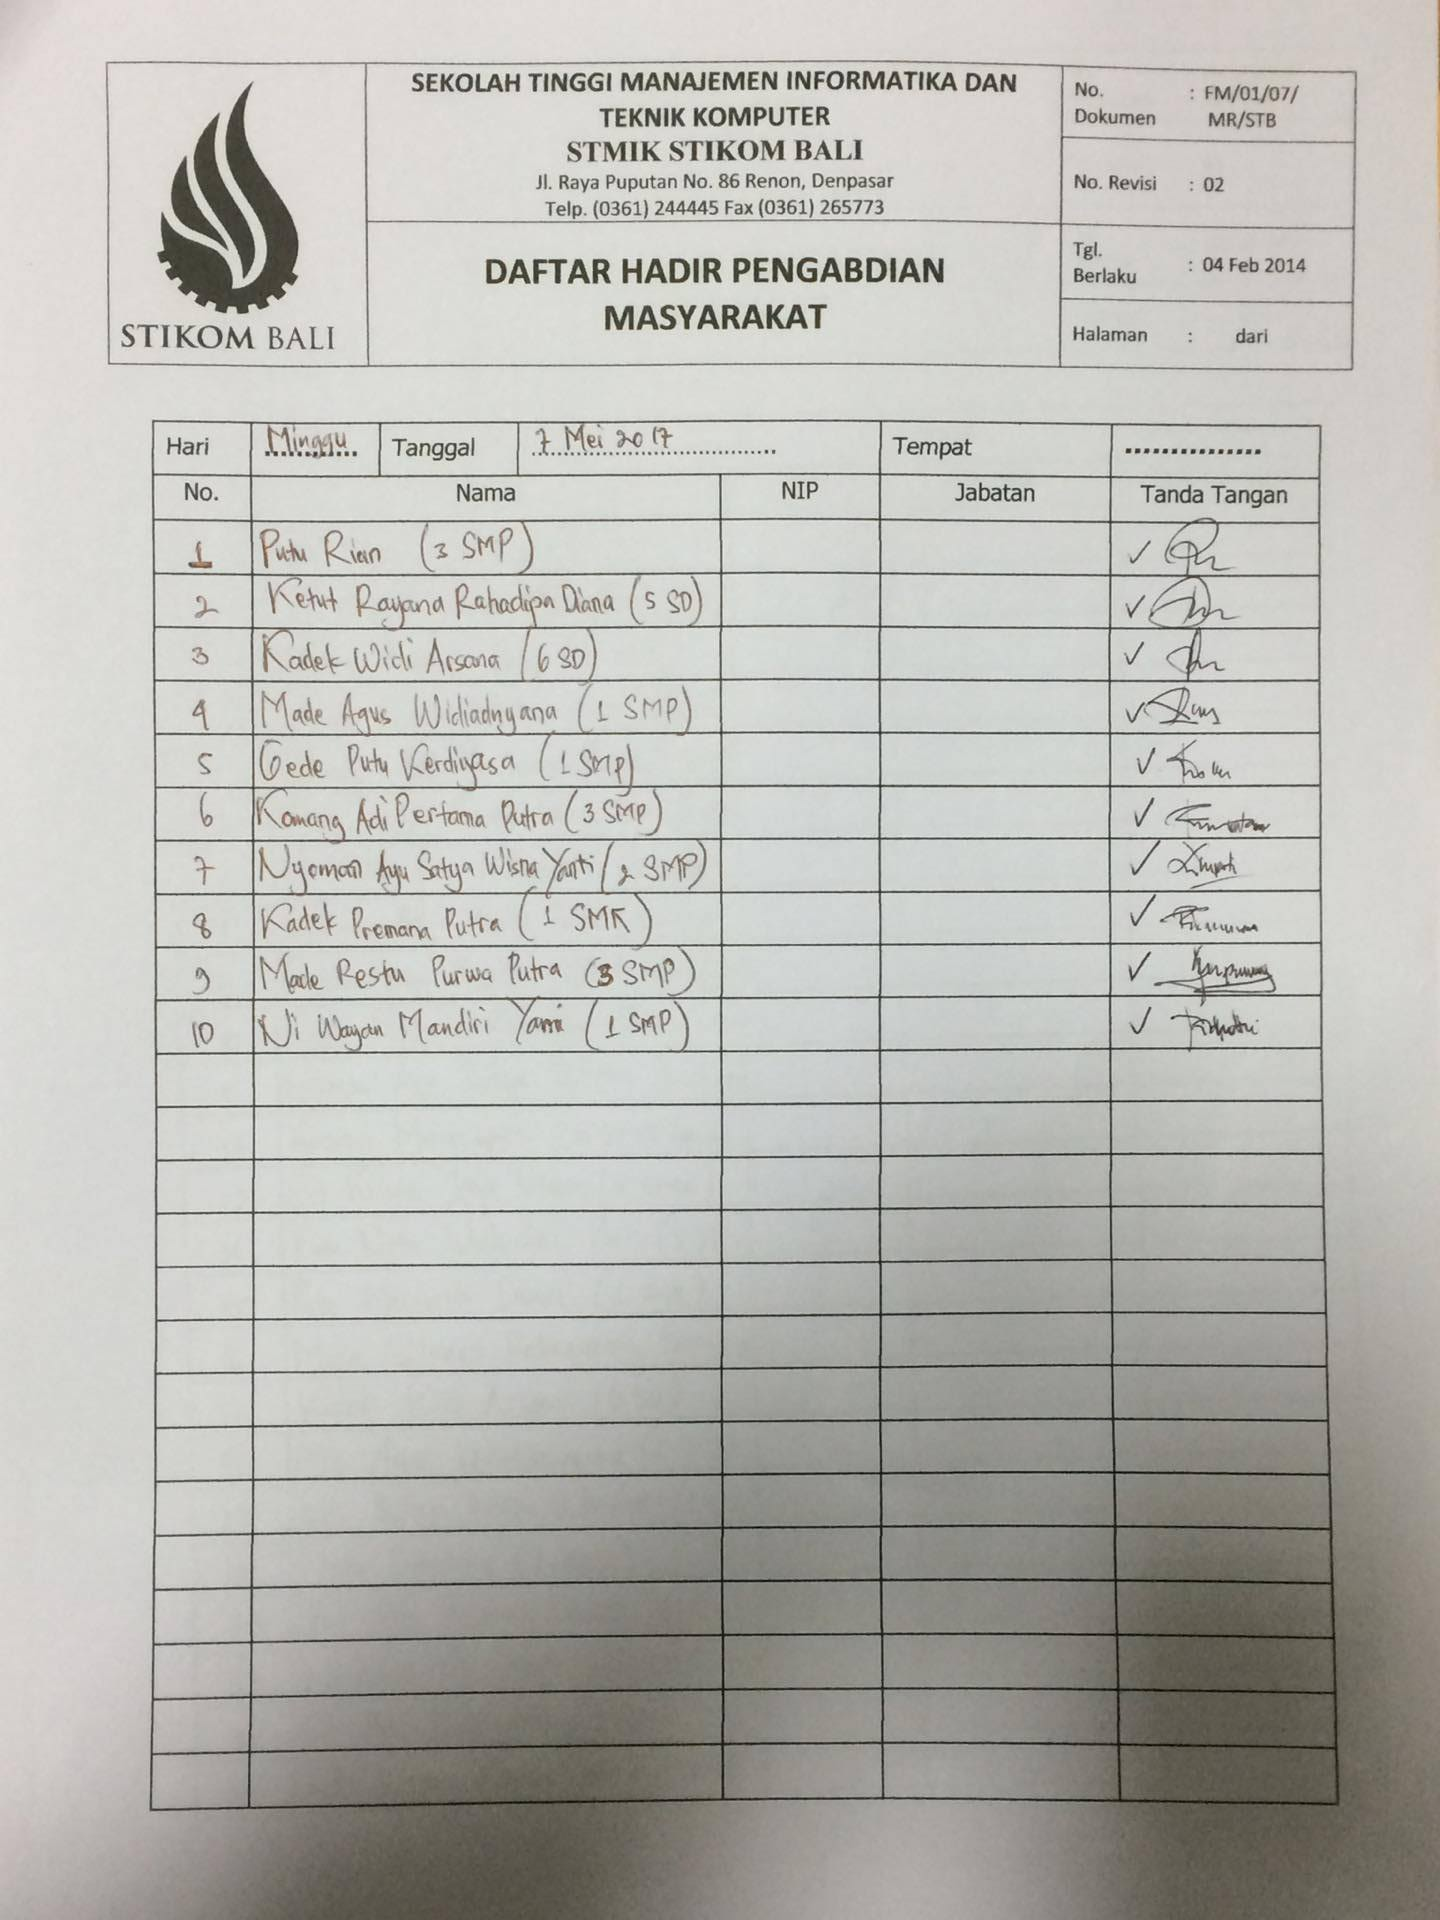 SEKOLAH TINGGI MANAJEMEN INFORMATIKA DAN
TEKNIK KOMPUTER
STMIK STIKOM BALI
Jl. Raya Puputan No. 86 Renon, Denpasar
Telp. (0361) 244445 Fax (0361) 265773
STIKOM BALI
DAFTAR HADIR PENGABDIAN
MASYARAKAT
No. Dokumen : FM/01/07/
MR/STB
No. Revisi : 02
Tgl. Berlaku : 04 Feb 2014
Halaman : dari
Hari Minggu Tanggal 7 Mei 2017 Tempat ...............
No. Nama NIP Jabatan Tanda Tangan
1 Putu Rian (3 SMP) ✓
2 Ketut Rayana Rahadipa Diana (5 SD) ✓
3 Kadek Widi Arsana (6 SD) ✓
4 Made Agus Widiadnyana (1 SMP) ✓
5 Gede Putu Kerdiyasa (1 SMP) ✓
6 Komang Adi Pertama Putra (3 SMP) ✓
7 Nyoman Ayu Satya Wisna Yanti (2 SMP) ✓
8 Kadek Premana Putra (1 SMK) ✓
9 Made Restu Purwa Putra (3 SMP) ✓
10 Ni Wayan Mandiri (1 SMP) ✓